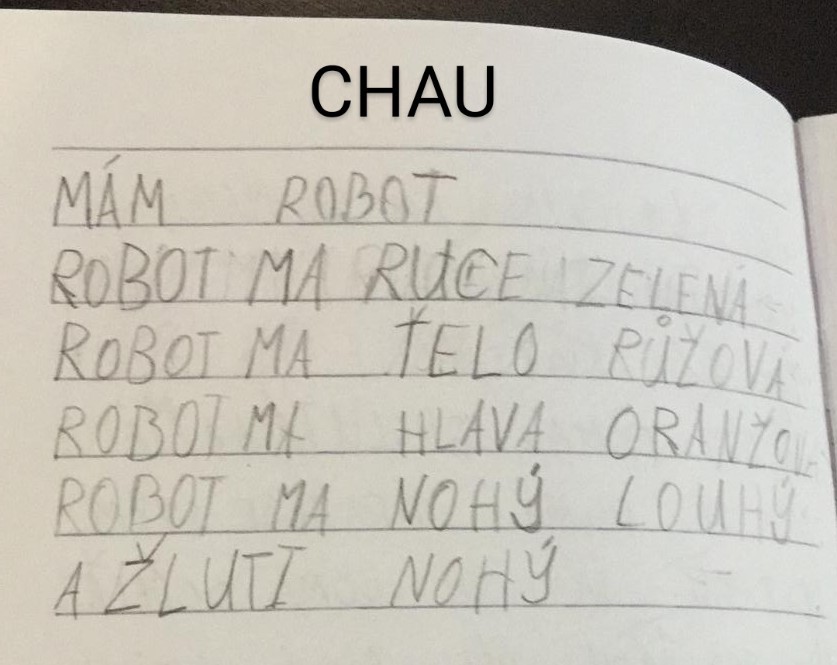 CHAU
MÁM ROBOT
ROBOT MA RUCE ZELENÁ
ROBOT MA ŤELO RŮŽOVA
ROBOT MA HLAVA ORANŽOVE
ROBOT MA NOHÝ LOUHÝ
A ŽLUTI NOHÝ